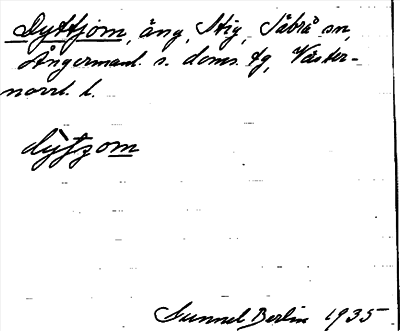 Dyttjom, äng, Stig, Säbrå sn,
Ångermanl. s. doms. tg, Väster-
norrl. l.
dy̌tjom
Gunnel Berlin 1935